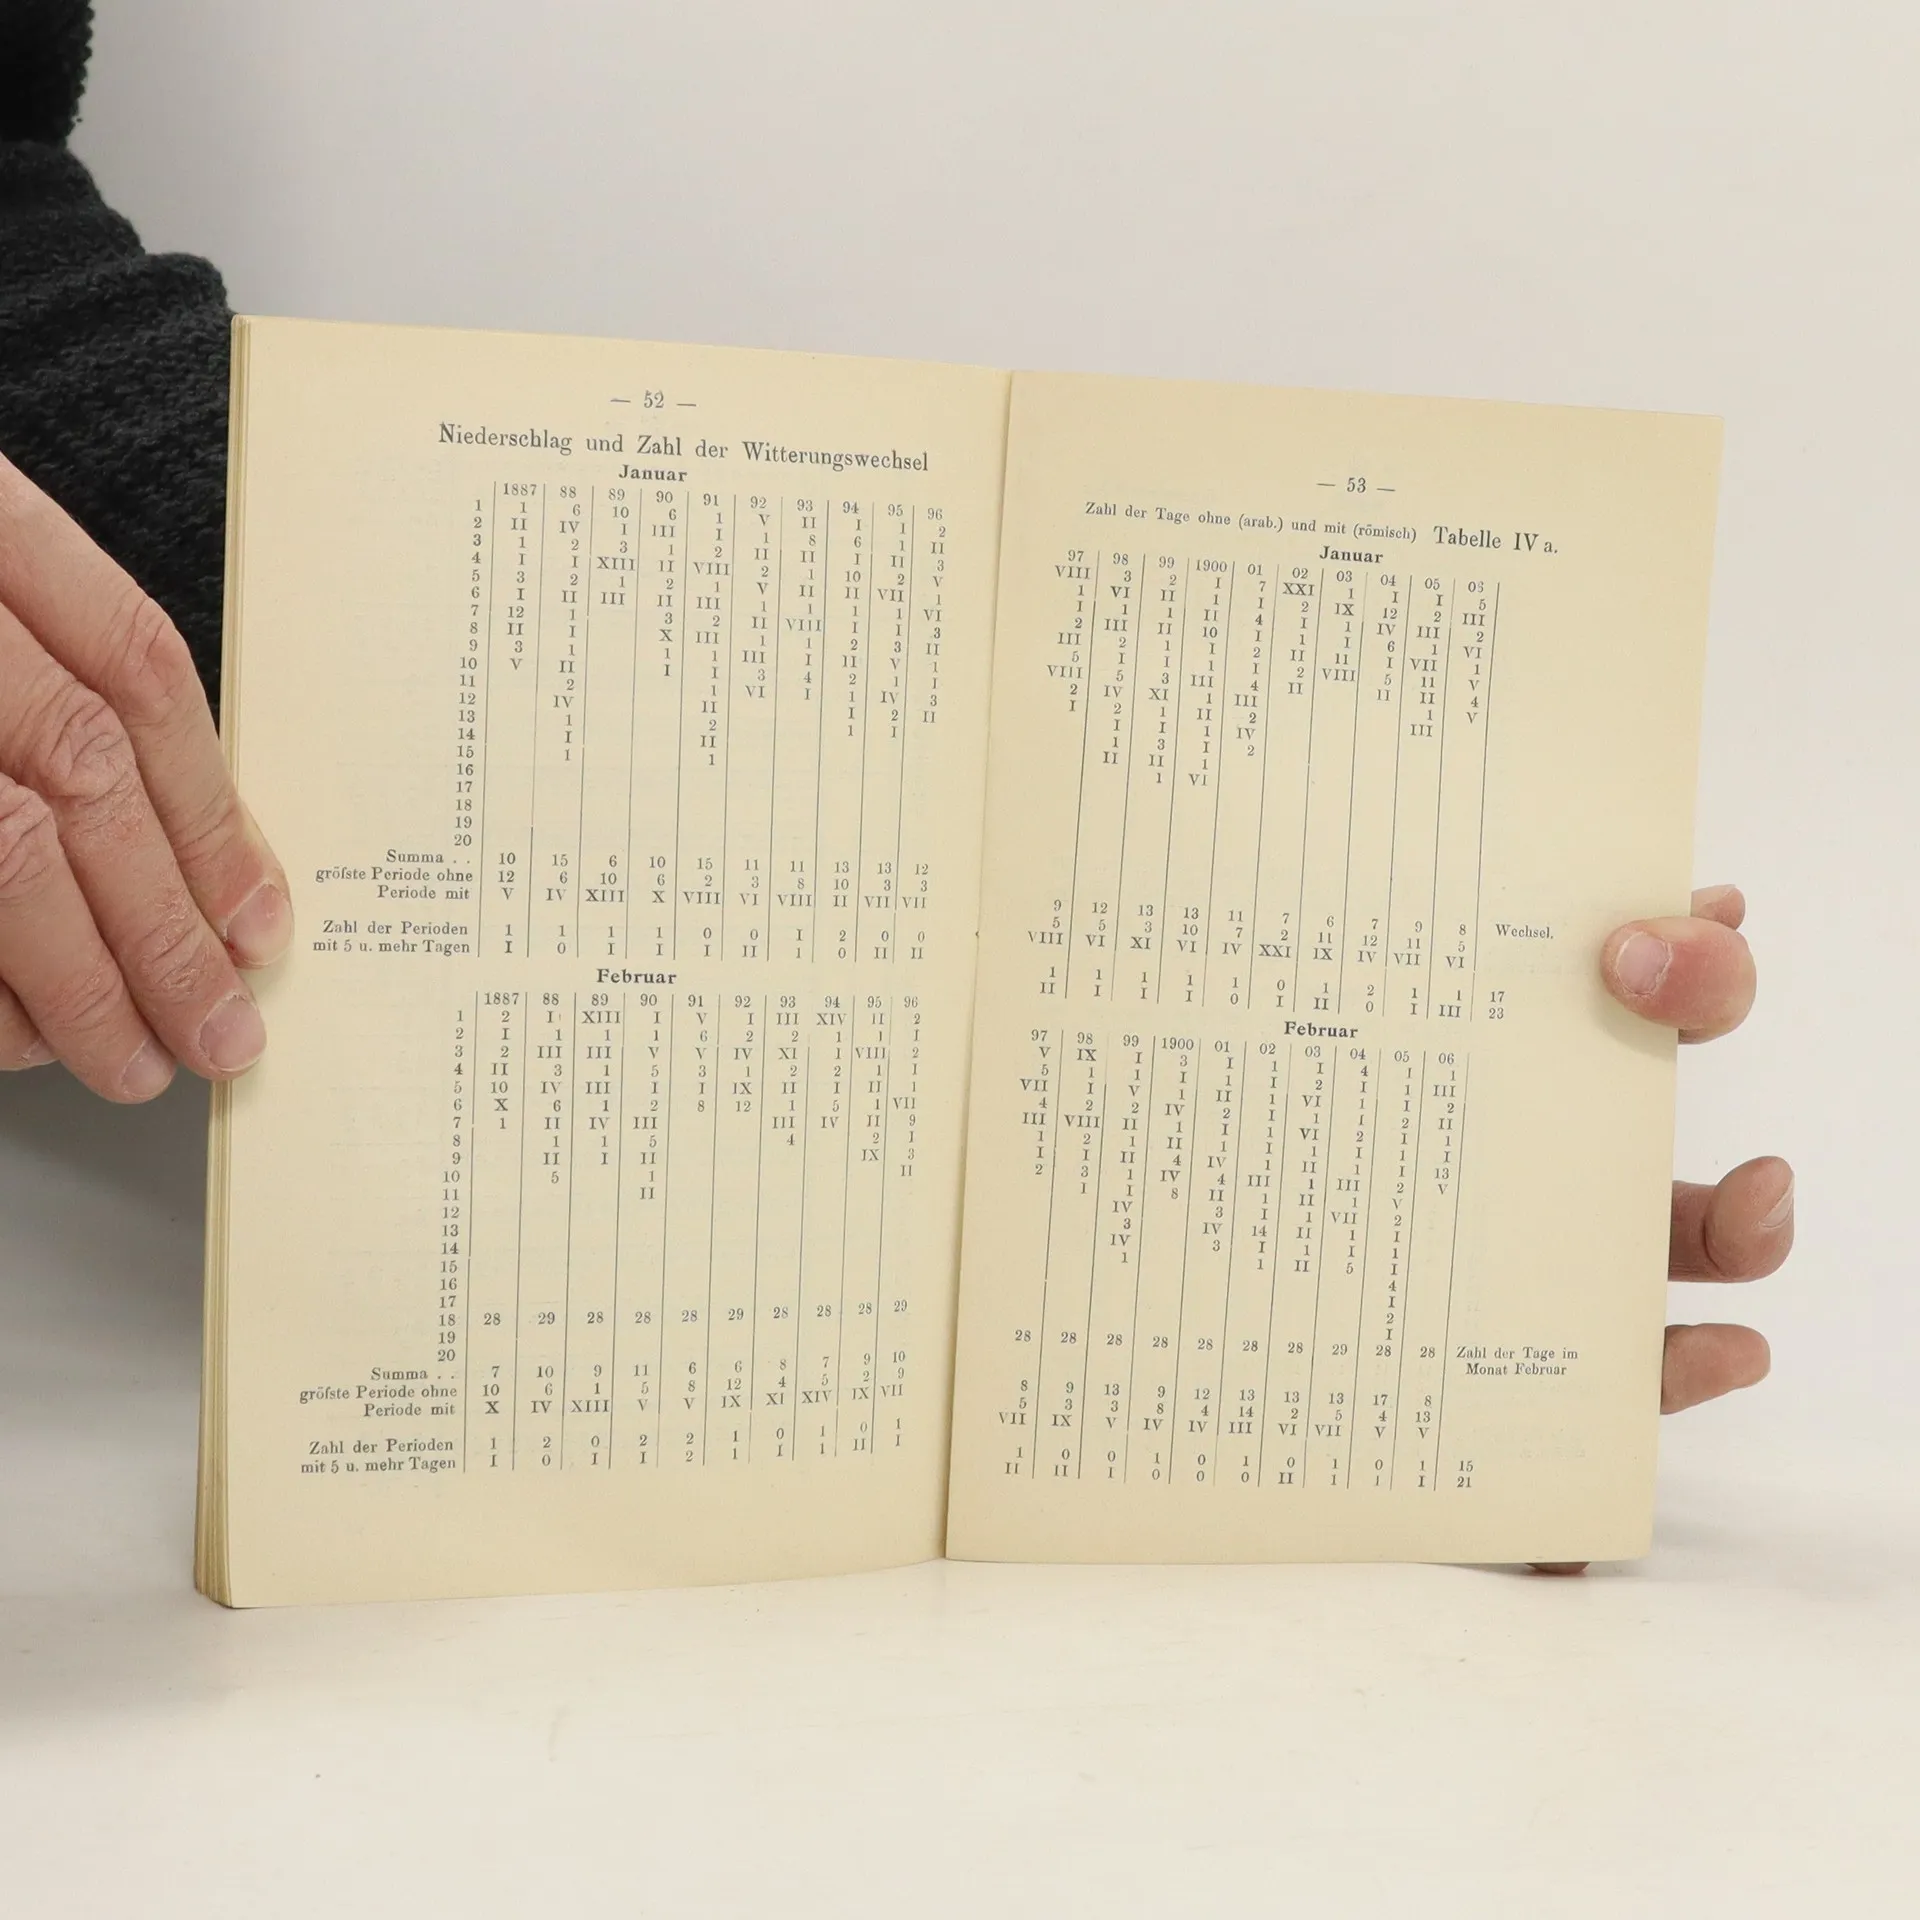 — 52 —
Niederschlag und Zahl der Witterungswechsel
Januar
1887 88 89 90 91 92 93 94 95 96
1 1 6 10 6 1 V II I 1 2
2 II IV I III I 1 8 6 1 II
3 1 2 3 1 2 II II I II 3
4 I I XIII II VIII 2 1 10 2 V
5 3 2 1 2 1 V II II VII 1
6 I II III II III 1 1 1 1 VI
7 12 1 3 2 II VIII I I 3
8 II I X III 1 1 2 3 II
9 3 1 1 1 III I II V 1
10 V II I I 3 4 2 1 I
11 2 1 VI I 1 IV 3
12 IV II I 2 II
13 1 2 1 I
14 I II
15 1 1
16
17
18
19
20
Summa . . 10 15 6 10 15 11 11 13 13 12
gröſste Periode ohne 12 6 10 6 2 3 8 10 3 3
Periode mit V IV XIII X VIII VI VIII II VII VII
Zahl der Perioden 1 1 1 1 0 0 I 2 0 0
mit 5 u. mehr Tagen I 0 I I I II 1 0 II II
Februar
1887 88 89 90 91 92 93 94 95 96
1 2 I XIII I V I III XIV II 2
2 I 1 1 1 6 2 2 1 1 I
3 2 III III V V IV XI I VIII 2
4 II 3 1 5 3 1 2 2 1 I
5 10 IV III I I IX II I II 1
6 X 6 1 2 8 12 1 5 1 VII
7 1 II IV III III IV II 9
8 1 1 5 4 2 I
9 II I II IX 3
10 5 1 II
11 II
12
13
14
15
16
17
18 28 29 28 28 28 29 28 28 28 29
19
20
Summa . . 7 10 9 11 6 6 8 7 9 10
gröſste Periode ohne 10 6 1 5 8 12 4 5 2 9
Periode mit X IV XIII V V IX XI XIV IX VII
Zahl der Perioden 1 2 0 2 2 1 0 1 0 1
mit 5 u. mehr Tagen I 0 I I 2 1 I 1 II I
— 53 —
Zahl der Tage ohne (arab.) und mit (römisch) Tabelle IV a.
Januar
97 98 99 1900 01 02 03 04 05 06
VIII 3 2 I 7 XXI 1 I I 5
1 VI II 1 I 2 IX 12 2 III
I 1 1 II 4 I 1 IV III 2
2 III II 10 I 1 I 6 1 VI
III 2 1 I 2 II 11 I VII 1
5 I I 1 I 2 VIII 5 11 V
VIII 5 3 III 4 II II II 4
2 IV XI 1 III 1 V
I 2 1 II 2 III
I I 1 IV
1 3 I 2
II II 1
1 VI
9 12 13 13 11 7 6 7 9 8 Wechsel.
5 5 3 10 7 2 11 12 11 5
VIII VI XI VI IV XXI IX IV VII VI
1 1 1 1 1 0 1 2 1 1 17
II I I I 0 I II 0 I III 23
Februar
97 98 99 1900 01 02 03 04 05 06
V IX I 3 I 1 I 4 I 1
5 1 1 I 1 I 2 I 1 III
VII I V 1 II 1 VI 1 I 2
4 2 2 IV 2 I 1 I 2 II
III VIII II 1 I 1 VI 2 I 1
1 2 1 II 1 I 1 I 1 I
I I II 4 IV 1 II 1 I 13
2 3 1 IV 4 III 1 III 2 V
I I 8 II 1 II 1 V
IV 3 I 1 VII 2
3 IV 14 II 1 I
IV 3 I 1 I 1
1 1 II 5 I
4
I
2
I
28 28 28 28 28 28 28 29 28 28 Zahl der Tage im
Monat Februar
8 9 13 9 12 13 13 13 17 8
5 3 3 8 4 14 2 5 4 13
VII IX V IV IV III VI VII V V
1 0 0 1 0 1 0 1 0 1 15
II II I 0 0 0 II 1 1 I 21